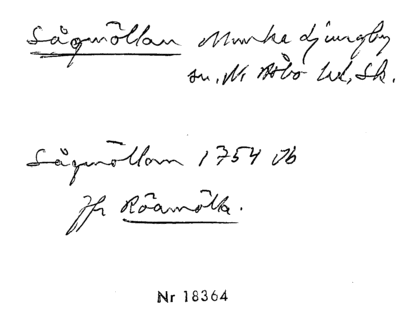 Sågmöllan Munka Ljungby
sn, N Åsbo hd, Sk.
Sågmöllan 1754 Jb
Jfr Röamölla.
Nr 18364